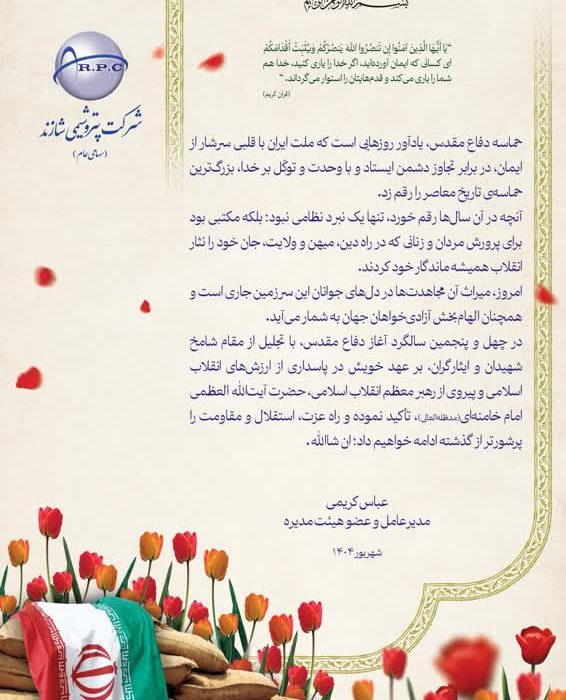 بسم الله الرحمن الرحیم
"یَا أَیُّهَا الَّذِینَ آمَنُوا إِن تَنصُرُوا اللَّهَ یَنصُرْكُمْ وَیُثَبِّتْ أَقْدَامَكُمْ
ای کسانی که ایمان آورده‌اید، اگر خدا را یاری کنید، خدا هم
شما را یاری می‌کند و قدم‌هایتان را استوار می‌گرداند."
(قرآن کریم)
A.R.P.C
شرکت پتروشیمی شازند
(سهامی عام)
حماسه دفاع مقدس، یادآور روزهایی است که ملت ایران با قلبی سرشار از
ایمان، در برابر تجاوز دشمن ایستاد و با وحدت و توکّل بر خدا، بزرگ‌ترین
حماسه‌ی تاریخ معاصر را رقم زد.
آنچه در آن سال‌ها رقم خورد، تنها یک نبرد نظامی نبود؛ بلکه مکتبی بود
برای پرورش مردان و زنانی که در راه دین، میهن و ولایت، جان خود را نثار
انقلاب همیشه ماندگار خود کردند.
امروز، میراث آن مجاهدت‌ها در دل‌های جوانان این سرزمین جاری است و
همچنان الهام‌بخش آزادی‌خواهان جهان به شمار می‌آید.
در چهل و پنجمین سالگرد آغاز دفاع مقدس، با تجلیل از مقام شامخ
شهیدان و ایثارگران، بر عهد خویش در پاسداری از ارزش‌های انقلاب
اسلامی و پیروی از رهبر معظم انقلاب اسلامی، حضرت آیت‌الله العظمی
امام خامنه‌ای(مدظله‌العالی)، تأکید نموده و راه عزت، استقلال و مقاومت را
پرشورتر از گذشته ادامه خواهیم داد؛ ان شاالله.
عباس کریمی
مدیرعامل و عضو هیئت مدیره
شهریور ۱۴۰۴